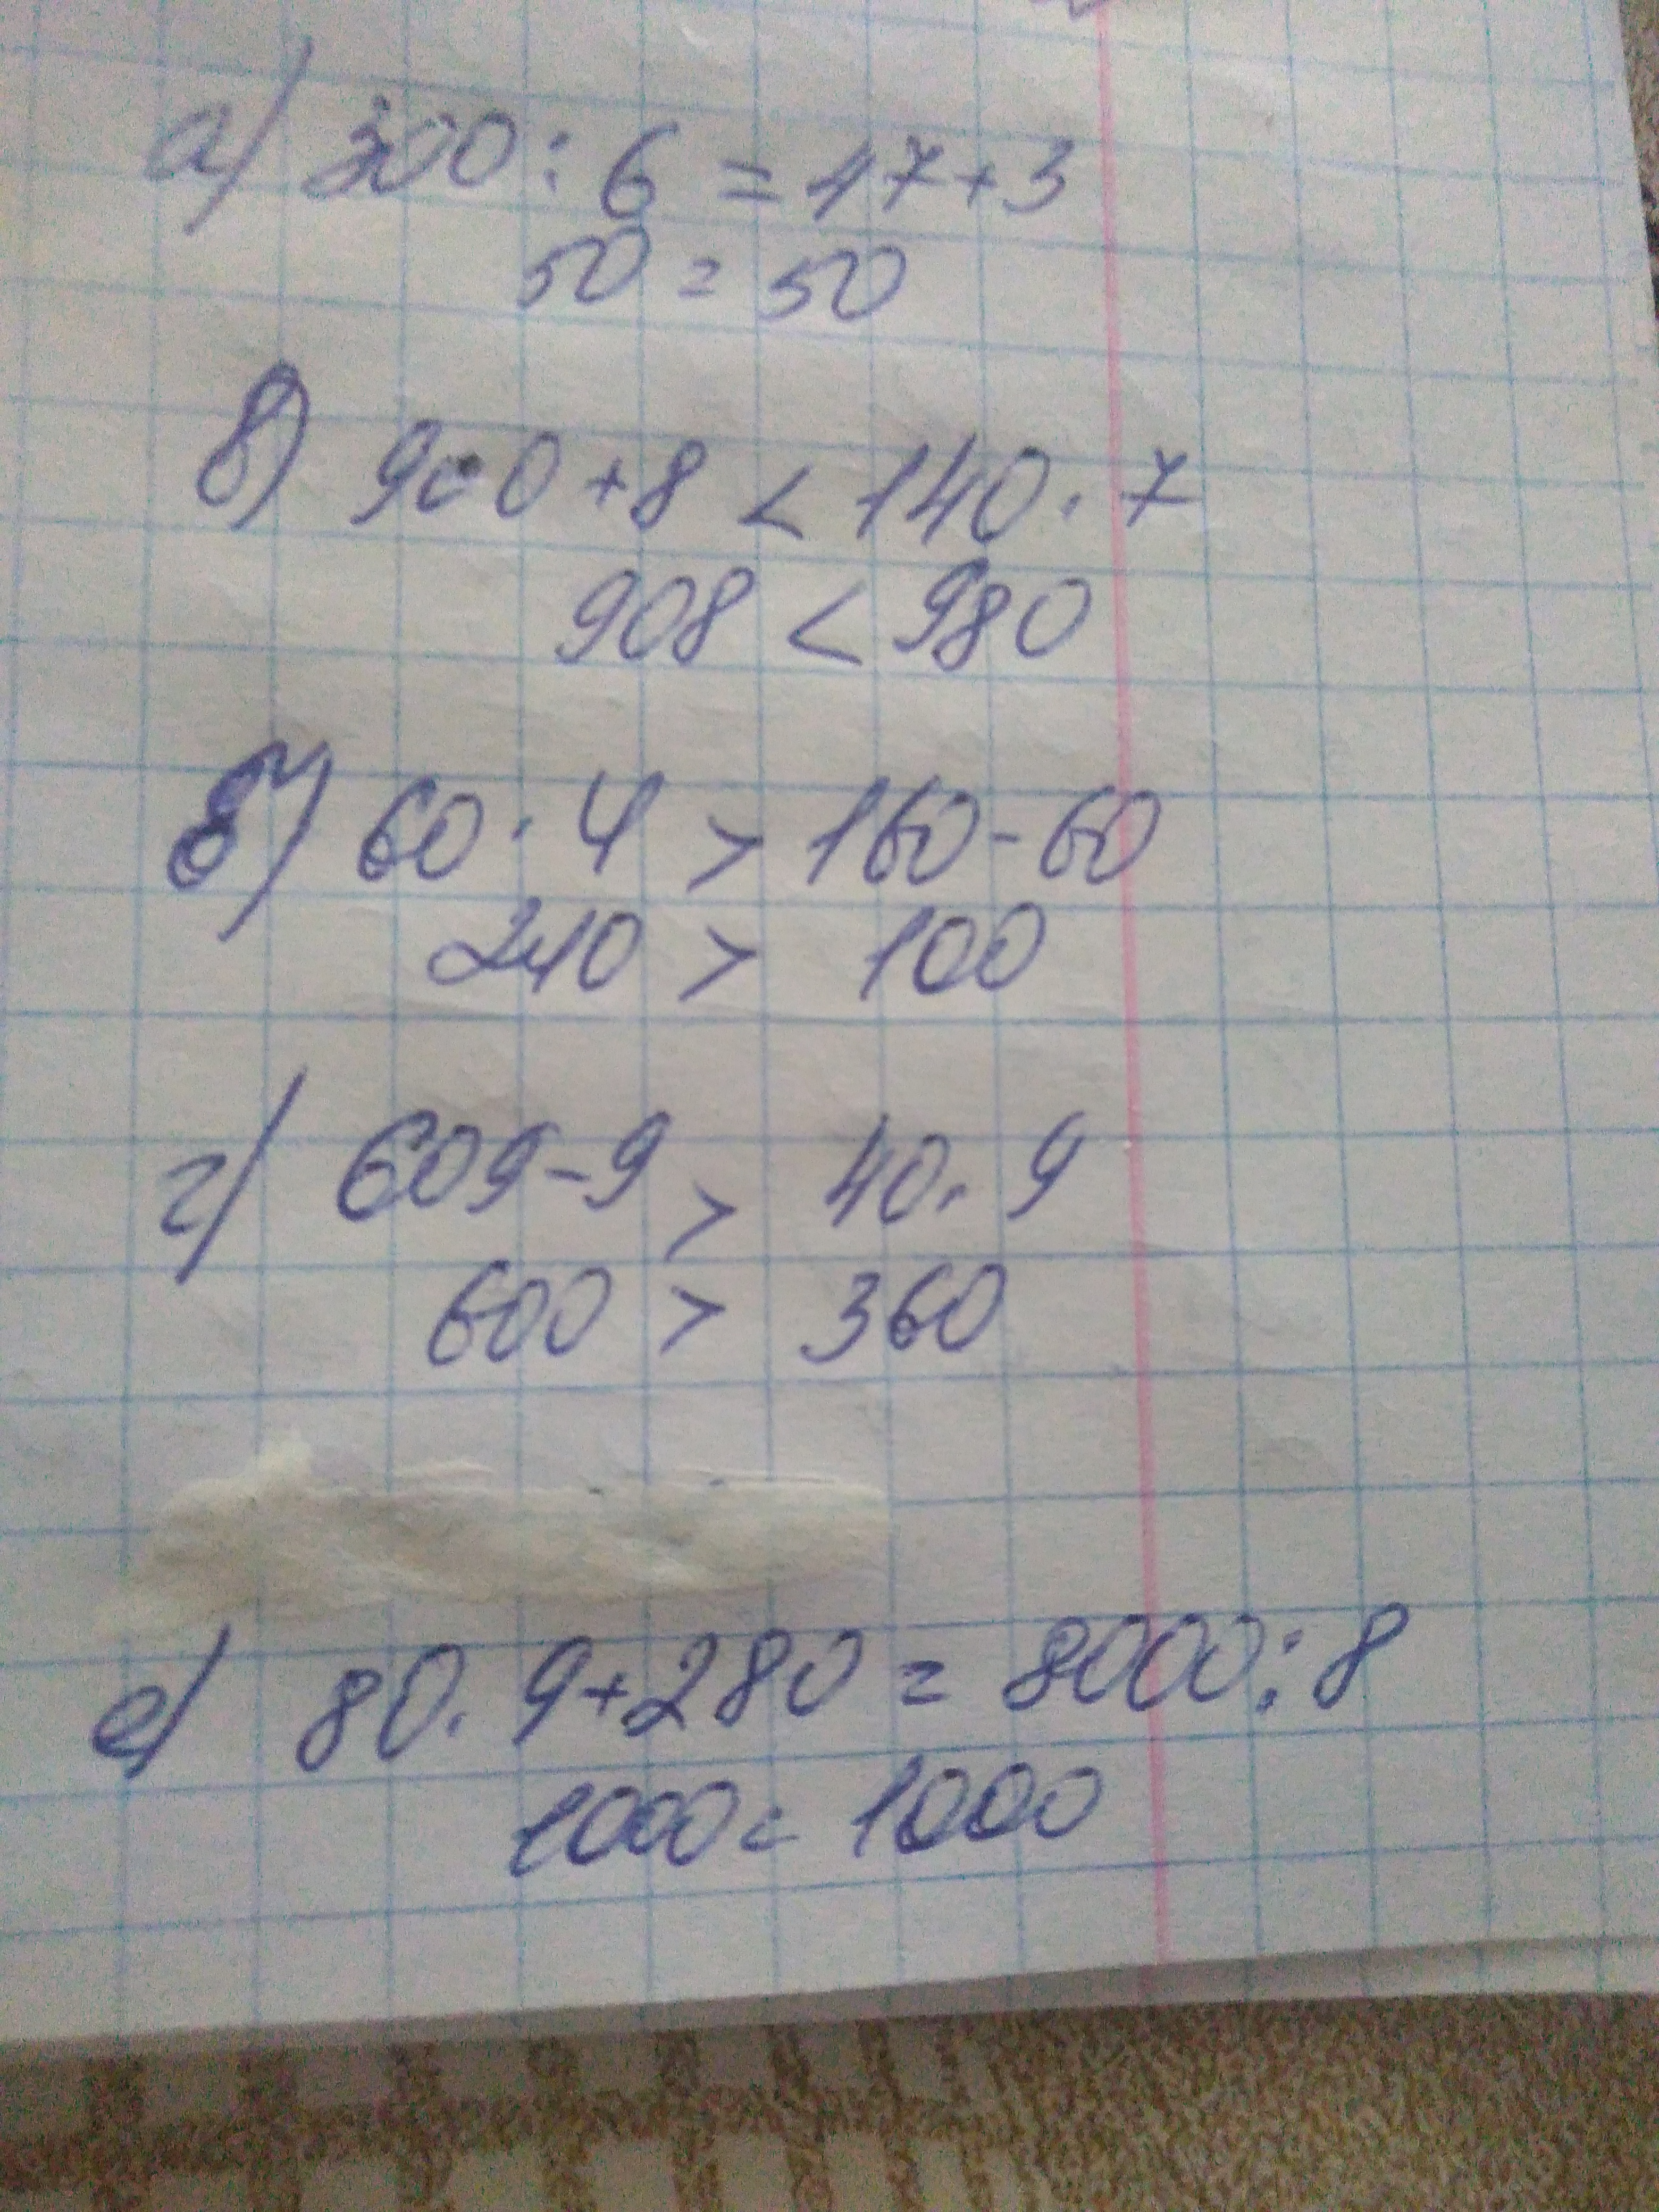 а) 300 : 6 = 47 + 3
50 = 50
в) 900 + 8 < 140 · 7
908 < 980
б) 60 · 4 > 160 - 60
240 > 100
г) 609 - 9 > 40 · 9
600 > 360
е) 80 · 9 + 280 = 8000 : 8
1000 = 1000